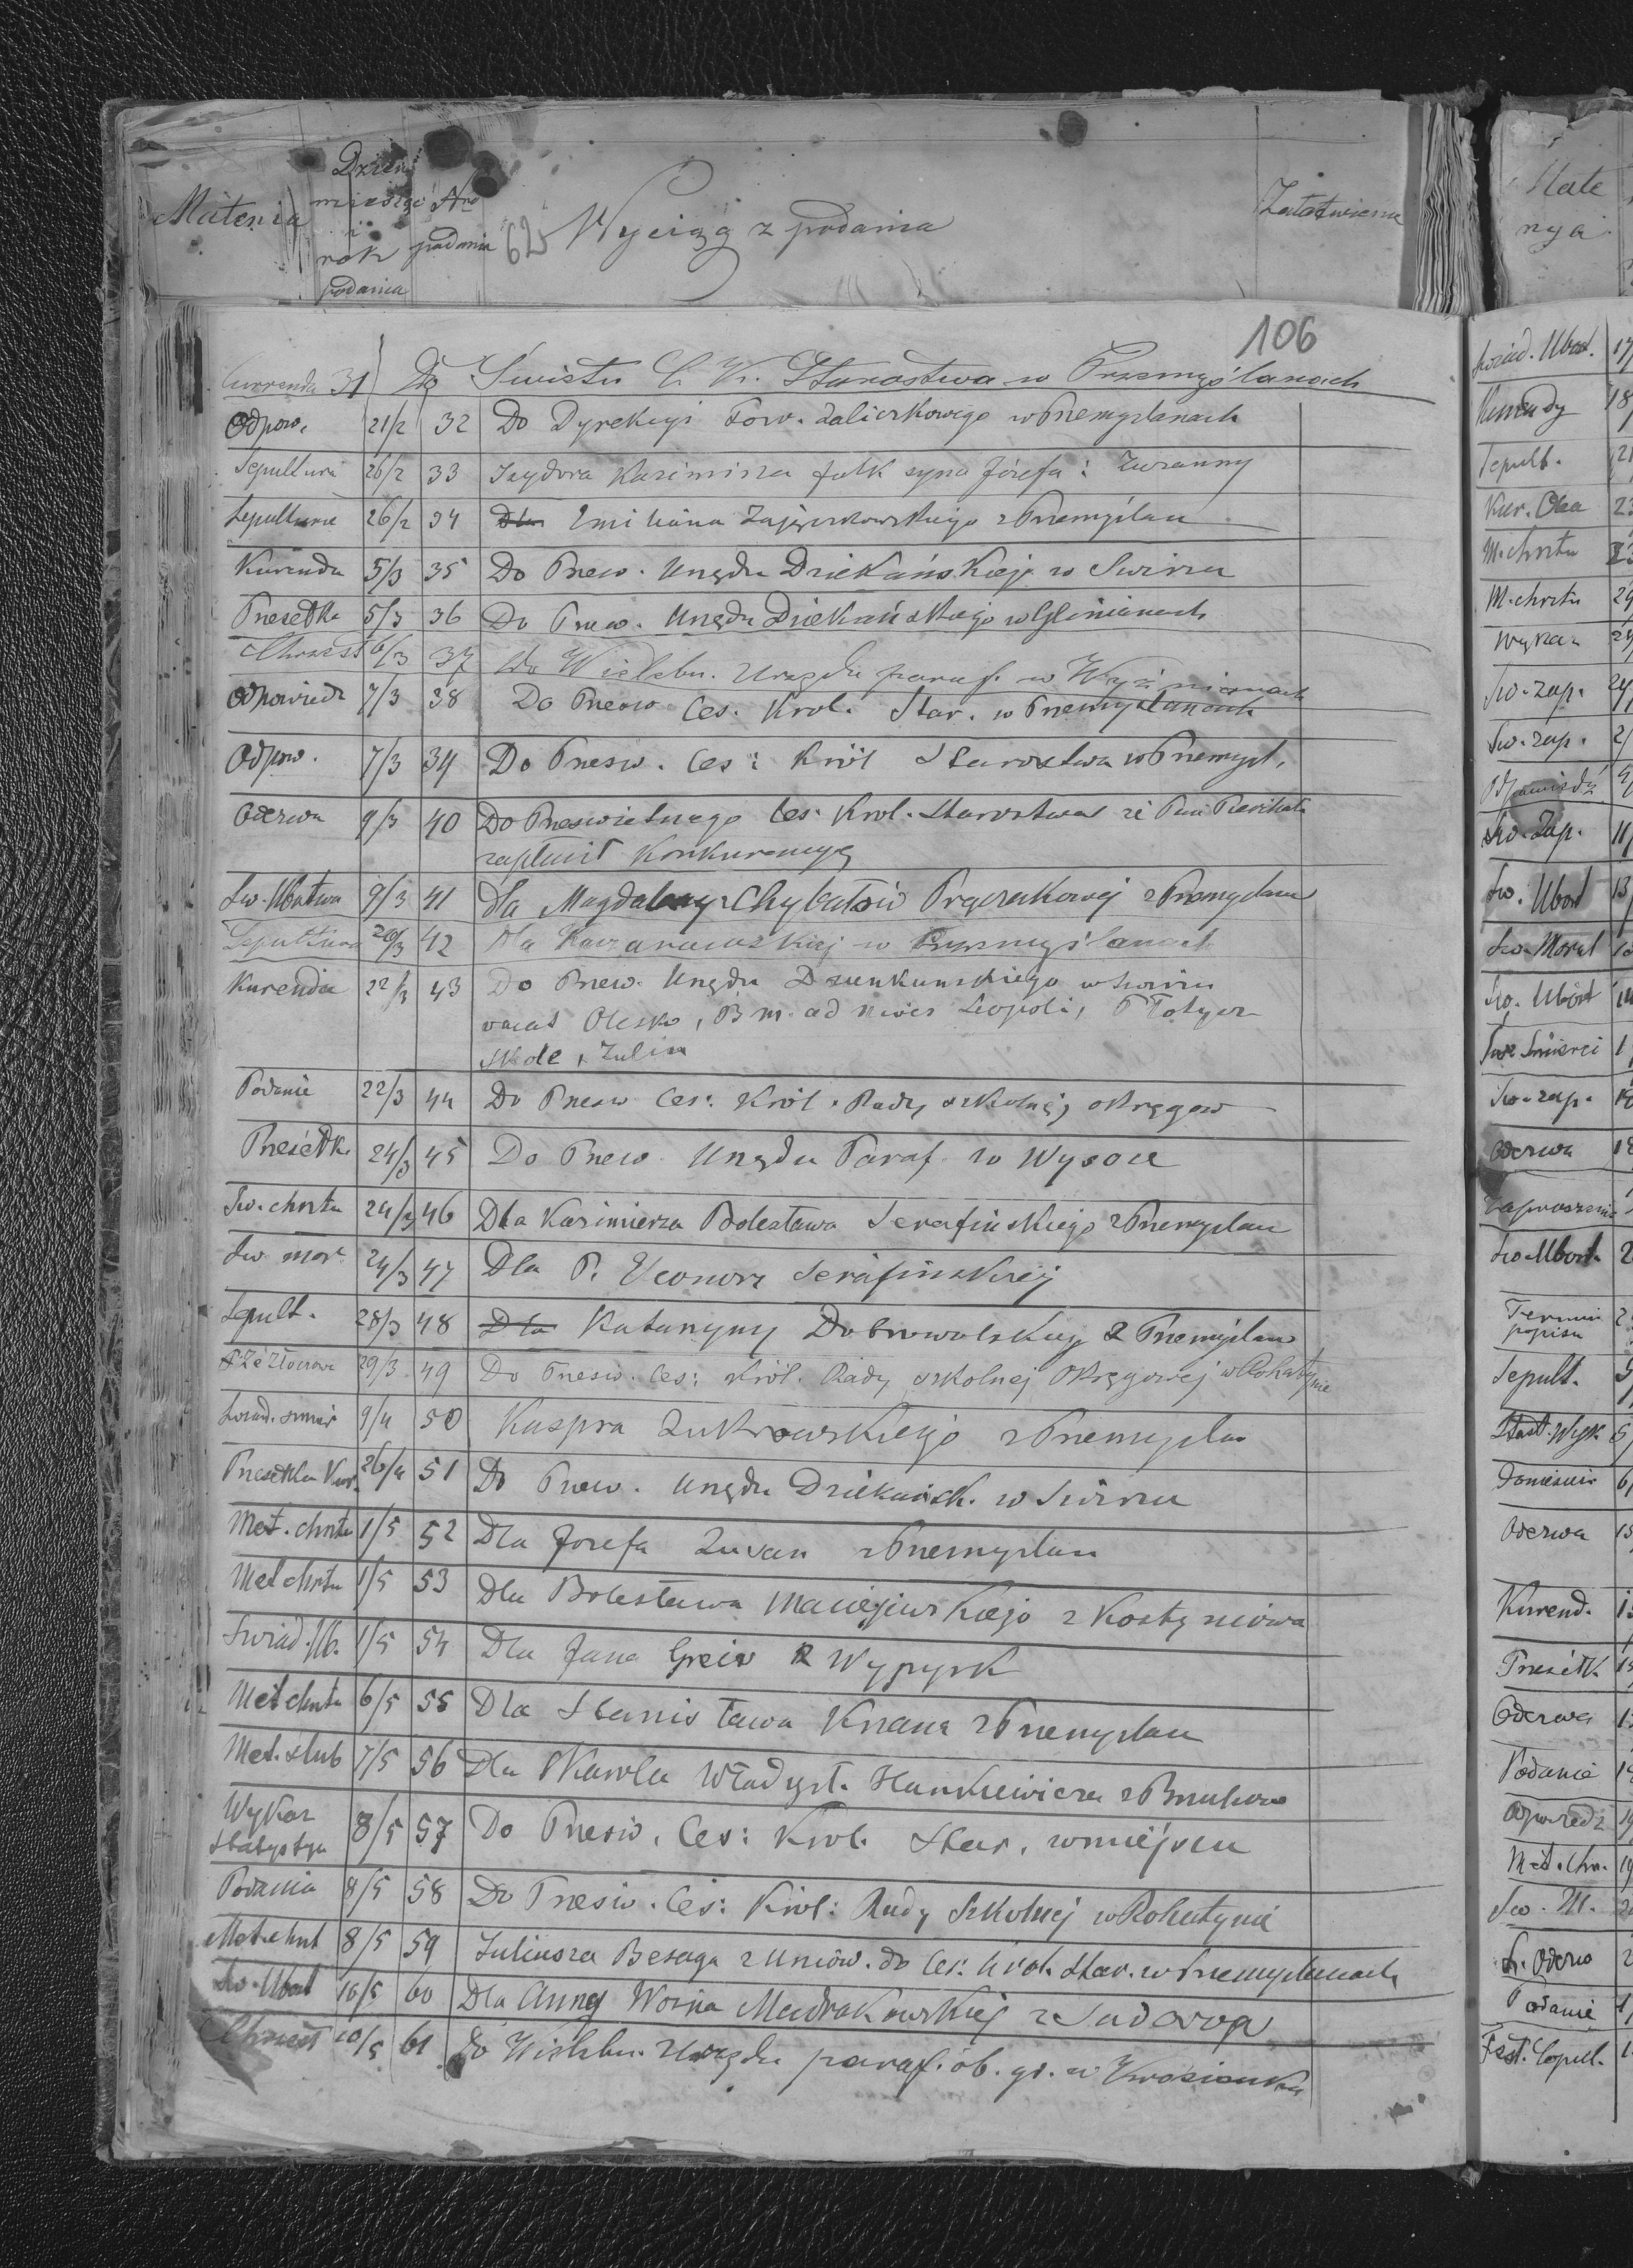 Materia
Dzień
miesiąc
i
rok
podania
Nro
podania
62
Wyciąg z podania
Załatwienie
106
Currenda 31 Do Świetn. C. K. Starostwa w Przemyślanach
Odpow. 21/2 32 Do Dyrekcyi Tow. zaliczkowego w Przemyslanach
Sepultura 26/2 33 Izydora Kazimirza Falk syna Józefa i Zuzanny
Sepultura 26/2 34 Dla Emiliana z Przemyślan
Kurenda 5/3 35 Do Przew. Urzędu Dziekańskiego w Swirzu
Przesełka 5/3 36 Do Przew. Urzędu Dziekańskiego w Glinianach
Chrzest 6/3 37 Do Wielebn. Urzędu paraf. w Wyżnianach
Odpowiedz 7/3 38 Do Przesw. Ces. Krol. Star. w Przemyslanach
Odpow. 7/3 39 Do Przesw. Ces: Król Starostwa w Przemysl.
Odezwa 9/3 40 Do Przeswietnego Ces. Krol. Starostwa że Pan
zapłacił Konkurencyę
Sw. Ubóstwa 9/3 41 Dla Magdaleny z Chybałów z Przemyslan
Sepultura 20/3 42 Dla w Przemyślanach
Kurenda 22/3 43 Do Przew. Urzędu Dziekanskiego w Swirzu
vacat Olesko, B. M. ad nives Leopoli,
Skole, Zulin
Podanie 22/3 44 Do Przesw Ces: Król. Rady szkolnej okręgow
Przesełk. 24/3 45 Do Przew. Urzędu Paraf. w Wysoce
Sw. chrztu 24/3 46 Dla Kazimierza Bolesława Serafińskiego z Przemyslan
Sw. mor. 24/3 47 Dla P. Eleonory Serafińskiej
Sepult. 28/3 48 Dla Katarzyny Dobrowolskiej z Przemyślan
29/3 49 Do Przesw. Ces: Król. Rady szkolnej Okręgowej w Rohatynie
Swiad. smier 9/4 50 Kaspra Zukrowskiego z Przemyslan
Przesełka Kur. 26/4 51 Do Przew. Urzędu Dziekańsk. w Swirzu
Met. chrztu 1/5 52 Dla Jozefa Zuvan z Przemyslan
Met chrztu 1/5 53 Dla Bolesława Maciejewskiego z Kostyniowa
Swiad. Ub. 1/5 54 Dla Jana Greis z Wypysk
Met chrztu 6/5 55 Dla Stanisława Knaus z Przemyslan
Met. slub 7/5 56 Dla Karola Władysł. Hankiewicza z
Wykaz
statystyc 8/5 57 Do Przesw. Ces: Krol. Star. w miejscu
Podania 8/5 58 Do Przesw. Ces: Król: Rady Szkolnej w Rohatynie
Met. chrzt 8/5 59 Juliusza Besaga z Uniów. do Ces. Król. Star. w Przemyslanach
Sw. Ubost 10/5 60 Dla Anny Wozna z
Chrzest 10/5 61 Do Wielebn. Urzędu paraf. ob. gr. w
Mate
rya
Swiad. Ubost. 17/
Kurendy 18/
Sepult. 21
Kur. 23
M. chrztu 23
M. chrztu 24
Wykaz 24/
Sw. zap. 24/
Sw. zap. 2/
Odpowiedź 4/
Sw. Zap. 11/
Sw. Ubost 13/
Sw. Moral
Sw. Ubóst 14
Sw. Smierci 1
Sw. zap.
Odezwa 18
Zaproszenie
Sw. Ubost. 2
Termin
popisu
Sepult. 3
Stat. Wyk 5/
Doniesien 6/
Odezwa
Kurend.
Przesełk
Odezwa
Podanie
Odpowiedz
Met. Chr. 19
Sw. M.
Odezw
Podanie
Test. Copul.